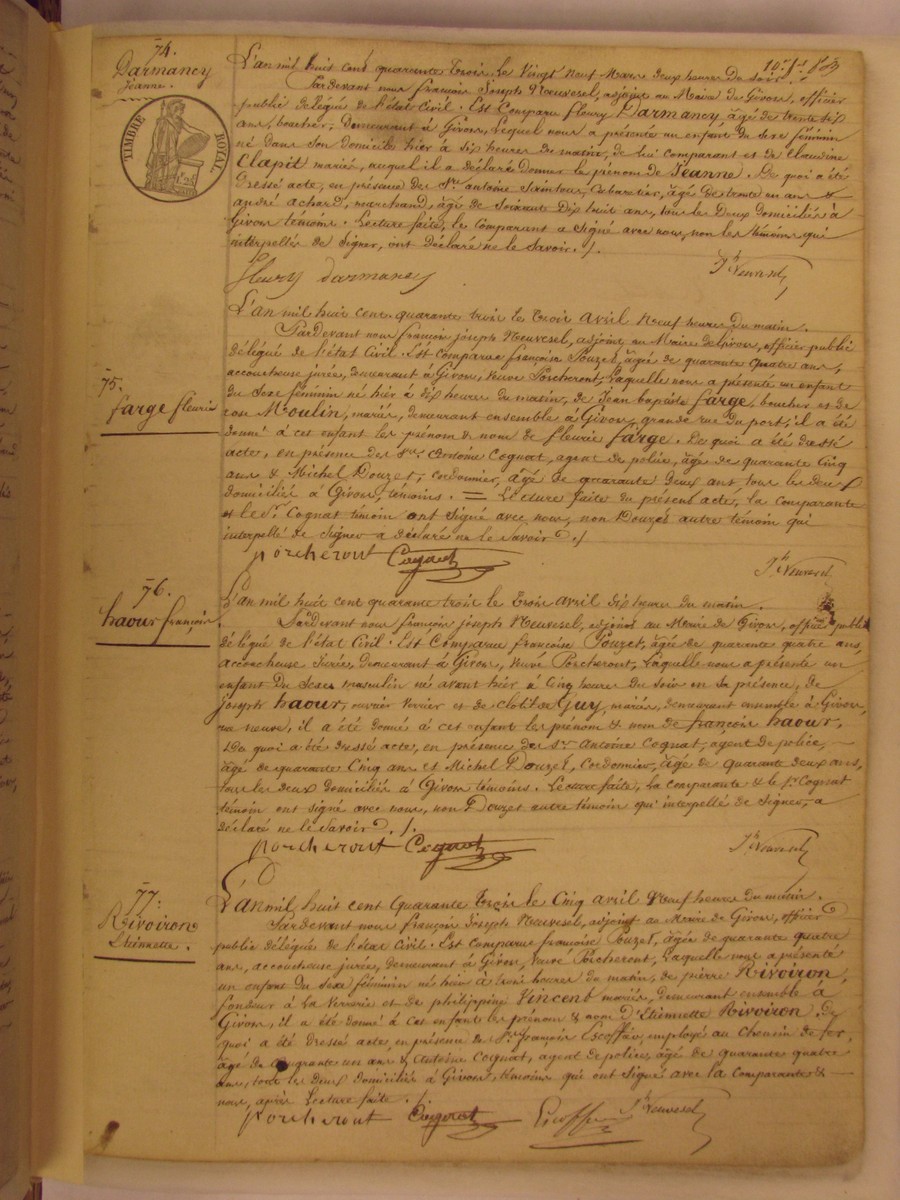 74.
Darmancy
Jeanne.
TIMBRE ROYAL
L'an mil huit cent quarante trois le Vingt neuf Mars deux heures du soir
Pardevant nous françois Joseph Neuvesel, adjoint au Maire de Givors, officier
public délégué de l'état Civil. Est Comparu fleury Darmancy, âgé de trente six
ans, boucher, demeurant à Givors, lequel nous a présenté un enfant du sexe féminin
né dans son domicile hier à six heures du matin, de lui comparant et de Claudine
Clapit mariés, auquel il a déclaré donner le prénom de Jeanne. De quoi a été
dressé acte, en présence des Srs antoine Saintour, Cabaretier, âgé de trente un ans &
andré achard, marchand, âgé de soixante Dix huit ans, tous les Deux domiciliés à
Givors témoins. Lecture faite, le Comparant a Signé avec nous, non les témoins qui
interpellés de Signer, ont déclaré ne le Savoir ./.
fleury darmancy
Jh Neuvesel
75.
farge fleurie
L'an mil huit cent quarante trois le trois avril Neuf heures du matin.
Pardevant nous françois joseph Neuvesel, adjoint au Maire de Givors, officier public
délégué de l'état Civil. Est Comparue françoise Pouzet, âgée de quarante quatre ans,
accoucheuse jurée, demeurant à Givors, Veuve Porcheront, laquelle nous a présenté un enfant
du Sexe féminin né hier à dix heures du matin, de Jean baptiste farge, boucher et de
rose Moulin, mariés, demeurant ensemble à Givors, grande rue du port, il a été
donné à cet enfant les prénom & nom de fleurie farge. De quoi a été dressé
acte, en présence des Srs Antoine Cognat, agent de police, âgé de quarante Cinq
ans & Michel Douzet, cordonnier, âgé de quarante deux ans, tous les deux
domiciliés à Givors, témoins. = Lecture faite du présent acte, la comparante
& le Sr. Cognat témoin ont signé avec nous, non Douzet autre témoin qui
interpellé de Signer a déclaré ne le Savoir ./
porcheront Cognat
Jh Neuvesel
76.
haour françois
L'an mil huit cent quarante trois le trois avril dix heures du matin.
Pardevant nous françois joseph Neuvesel, adjoint au Maire de Givors, officier public
délégué de l'état Civil. Est Comparue françoise Pouzet, âgée de quarante quatre ans,
accoucheuse Jurée, demeurant à Givors, Veuve Porcheront, laquelle nous a présenté un
enfant du Sexe masculin né avant hier à Cinq heures du Soir en Sa présence, de
joseph haour, ouvrier Verrier et de Clotilde Guy, mariés, demeurant ensemble à Givors,
rue neuve, il a été donné à cet enfant les prénom & nom de françois haour,
De quoi a été dressé acte, en présence des Srs Antoine Cognat, agent de police,
âgé de quarante Cinq ans et Michel Douzet, Cordonnier, âgé de quarante deux ans,
tous les deux domiciliés à Givors témoins. Lecture faite, la comparante & le Sr. Cognat
témoin ont signé avec nous, non Douzet autre témoin qui interpellé de Signer, a
déclaré ne le Savoir ./.
porcheront Cognat
Jh Neuvesel
77.
Rivoiron
Etiennette.
L'an mil huit Cent Quarante trois le Cinq avril Neuf heures du matin.
Pardevant nous françois Joseph Neuvesel, adjoint au Maire de Givors, officier
public délégué de l'état Civil. Est Comparue françoise Pouzet, âgée de quarante quatre
ans, accoucheuse jurée, demeurant à Givors, Veuve Porcheront, laquelle nous a présenté
un enfant du Sexe féminin né hier à heures du matin, de pierre Rivoiron,
fondeur à la Verrerie et de philippine Vincent mariés, demeurant ensemble à
Givors, il a été donné à cet enfant les prénom & nom d'Etiennette Rivoiron. De
quoi a été dressé acte, en présence de Srs françois Escoffier, employé au Chemin de fer,
âgé de quarante un ans & Antoine Cognat, agent de police, âgé de quarante quatre
ans, tous les deux domiciliés à Givors, témoins qui ont Signé avec la Comparante &
nous, après Lecture faite ./.
porcheront Cognat Escoffier Jh Neuvesel